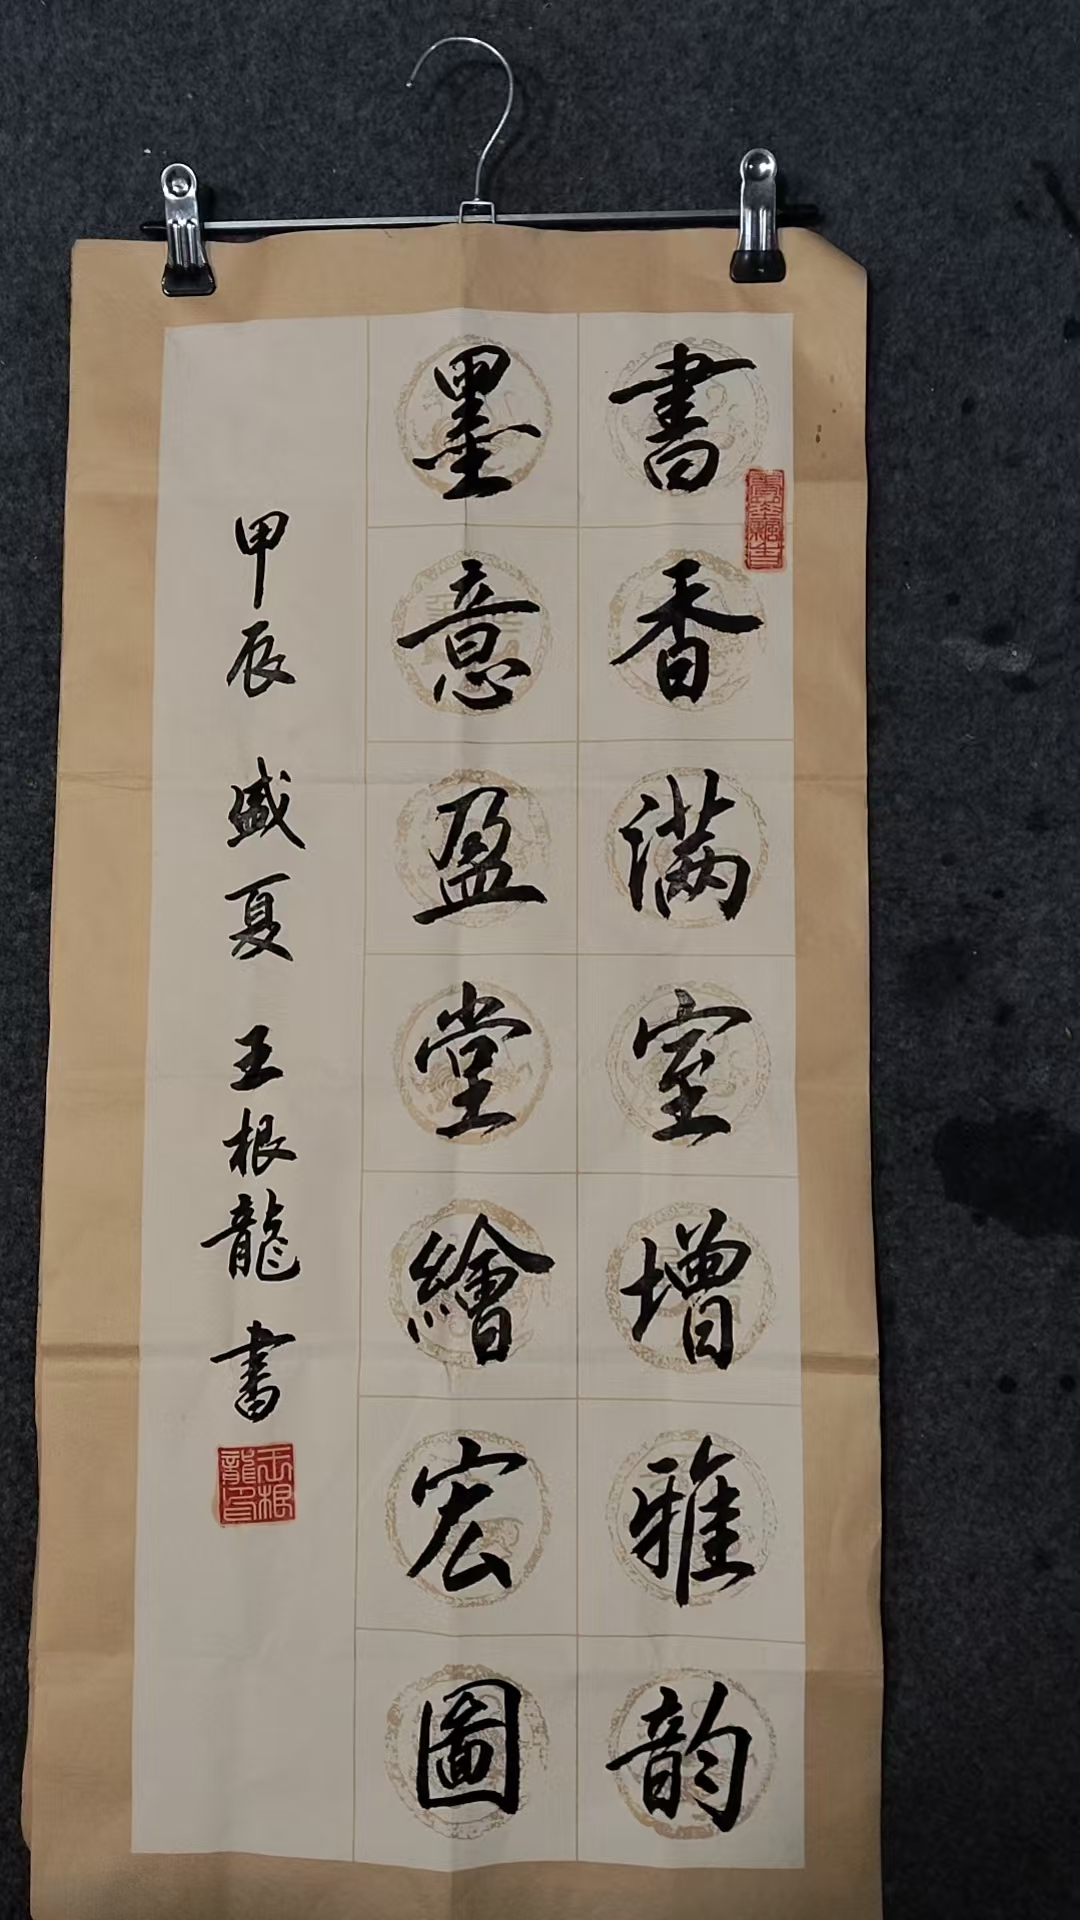 書香满室增雅韵
墨意盈堂繪宏圖
甲辰 盛夏 王根龍 書
王根龍印